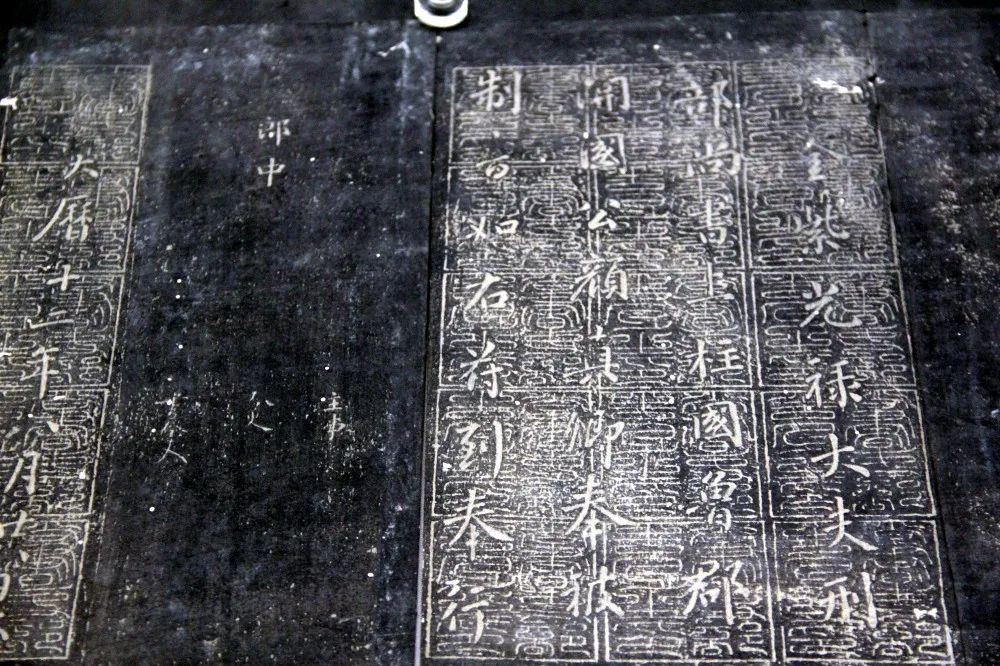 金紫光禄大夫刑
部尚書上柱國魯郡
開國公顏真卿奉被
制書如右符到奉行
郎中
主事
令史
書令史
大曆十二年八月廿